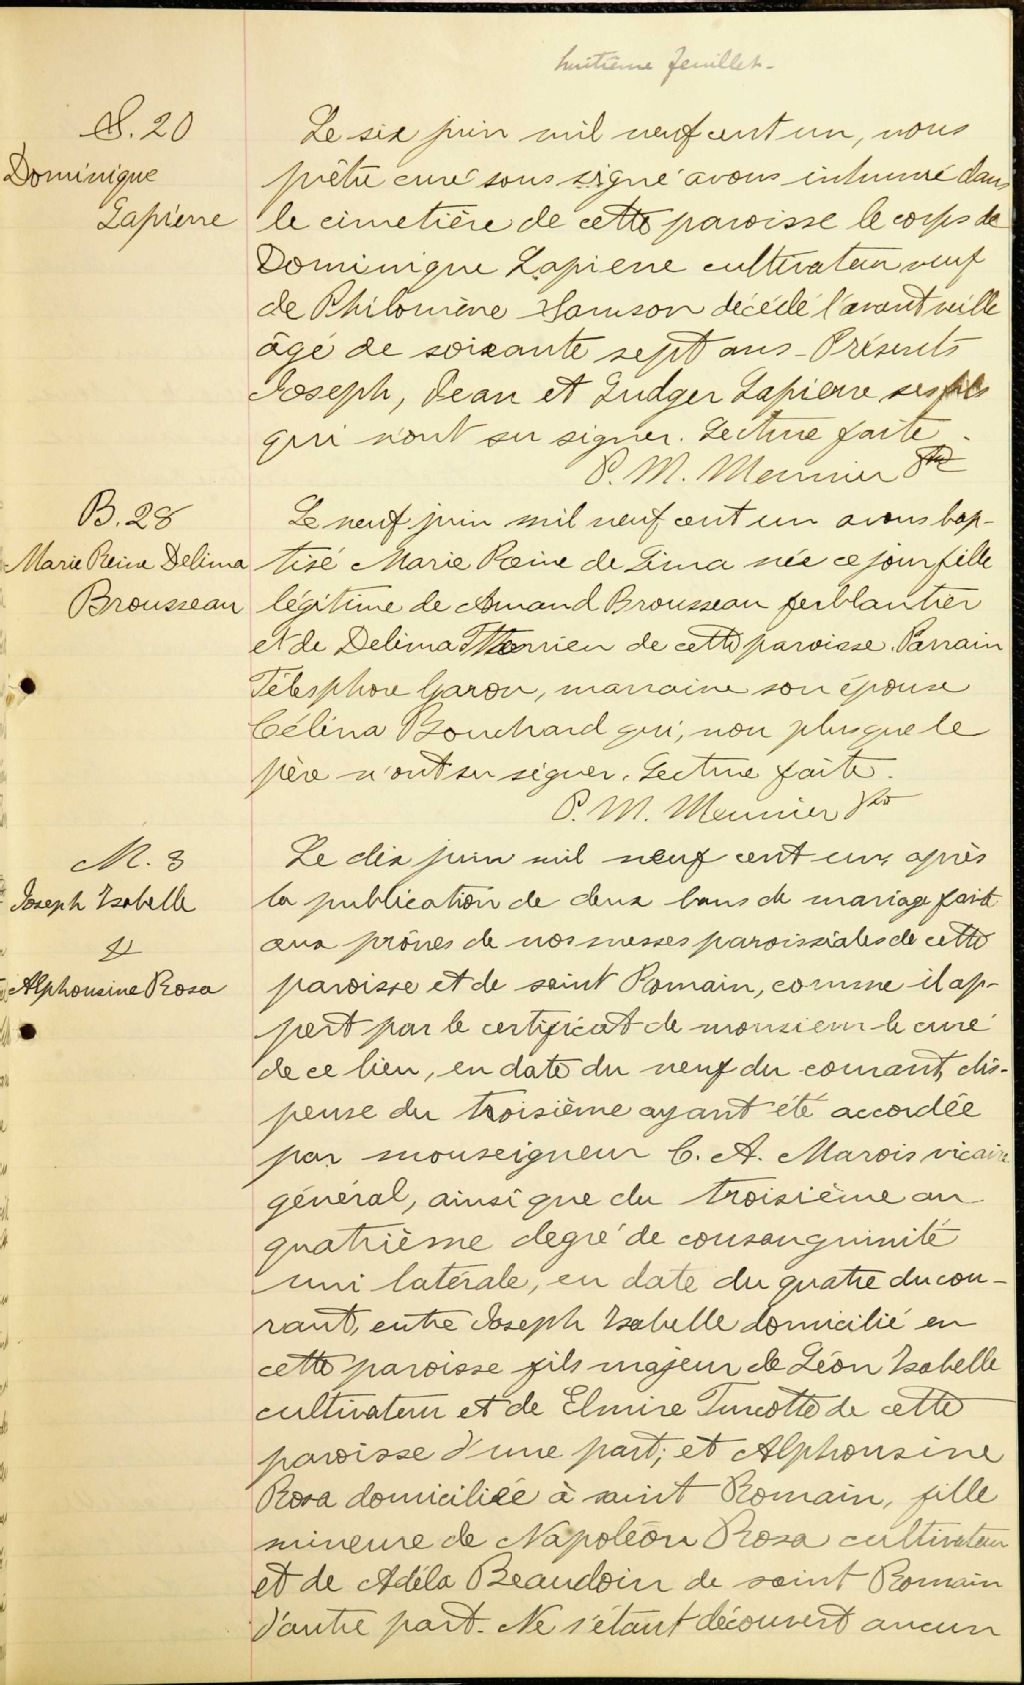 huitième feuillet.
S. 20
Dominique
Lapierre
Le six juin mil neuf cent un, nous
prêtre curé sous signé avons inhumé dans
le cimetière de cette paroisse le corps de
Dominique Lapierre cultivateur veuf
de Philomène Samson décédé l'avant veille
âgé de soixante sept ans - Présents
Joseph, Jean et Ludger Lapierre ses fils
qui n'ont su signer. Lecture faite.
P. M. Meunier Ptr
B. 28
Marie Reine Delima
Brousseau
Le neuf juin mil neuf cent un avons bap-
tisé Marie Reine de Lima née ce jour fille
légitime de Amand Brousseau ferblantier
et de Delima Therrien de cette paroisse. Parrain
Télesphore Garon, marraine son épouse
Célina Bouchard qui, non plus que le
père n'ont su signer. Lecture faite.
P. M. Meunier Ptr
M. 3
Joseph Isabelle
&
Alphonsine Rosa
Le dix juin mil neuf cent un, après
la publication de deux bans de mariage faite
aux prônes de nos messes paroissiales de cette
paroisse et de saint Romain, comme il ap-
pert par le certificat de monsieur le curé
de ce lieu, en date du neuf du courant, dis-
pense du troisième ayant été accordée
par monseigneur C. A. Marois vicaire
général, ainsi que du troisième au
quatrième degré de consanguinité
uni latérale, en date du quatre du cou-
rant, entre Joseph Isabelle domicilié en
cette paroisse fils majeur de Léon Isabelle
cultivateur et de Elmire Turcotte de cette
paroisse d'une part; et Alphonsine
Rosa domiciliée à saint Romain, fille
mineure de Napoléon Rosa cultivateur
et de Adéla Beaudoin de saint Romain
d'autre part. Ne s'étant découvert aucun